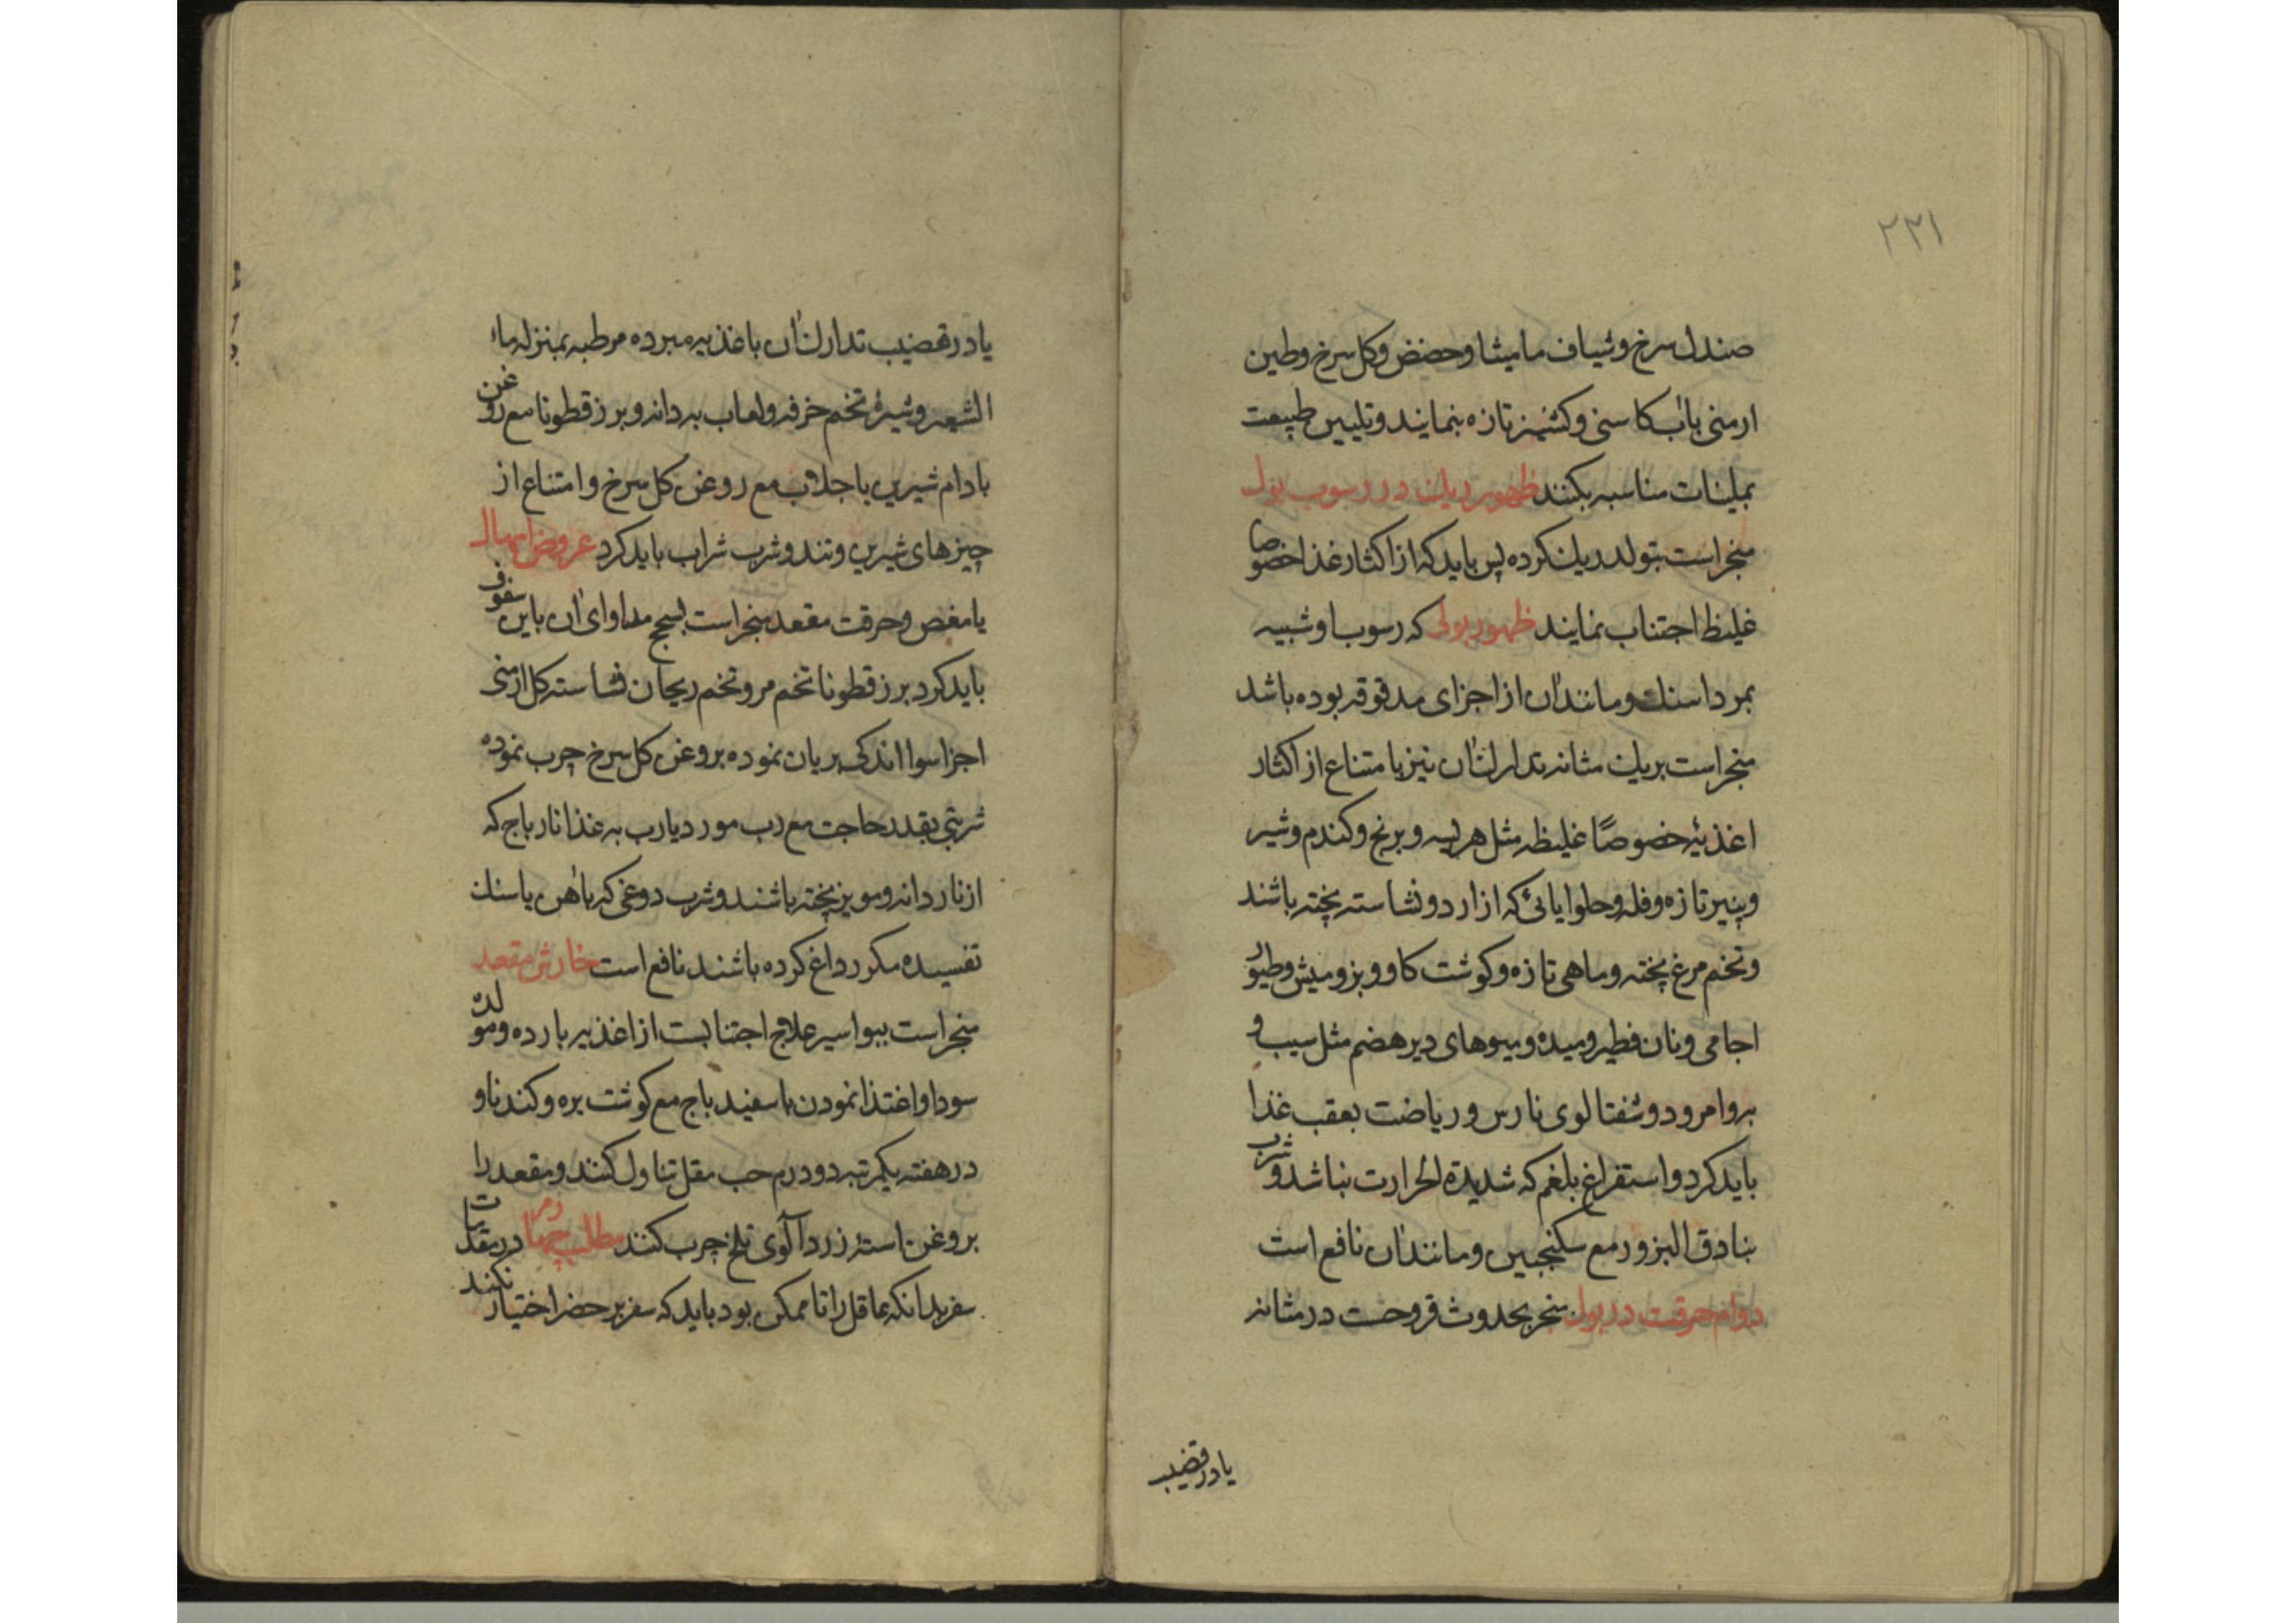 ۲۲۱
صندل سرخ و شیاف مامیثا و حضض و کل سرخ و طین
ارمنی باب کاسنی و کشنیز تازه بنمایند و تلیین طبیعت
بملینات مناسبه بکنند ظهور ریك در رسوب بول
منجر است بتولد ریك کرده پس باید که از اکثار غذا خصوصا
غلیظ اجتناب نمایند ظهور بولی که رسوب او شبیه
بمرداسنك و مانند ان از اجزای مدقوقه بوده باشد
منجر است بریك مثانه تدارك ان نیز بامتناع از اکثار
اغذیۀ خصوصًا غلیظه مثل هریسه و برنج و کندم و شیر
و پنیر تازه و فله و حلوایائی که از ارد و نشاسته پخته باشند
و تخم مرغ پخته و ماهی تازه و کوشت کاو و بز و میش و طیور
اجامی و نان فطیر و میده و میوهای دیر هضم مثل سیب و
به و امرود و شفتالوی نارس و ریاضت بعقب غذا
باید کرد و استفراغ بلغم که شدیدة الحرارت نباشد و شرب
بنادق البزور مع سکنجبین و مانند ان نافع است
دوام حرقت در بول منجر بحدوث قروحست در مثانه
یا در قضیب
یا در قضیب تدارك ان باغذیه مبرده مرطبه بمنزله ماء
الشعیر و شیرۀ تخم خرفه و لعاب به دانه و بزر قطونا مع روغن
بادام شیرین با جلاب مع روغن کل سرخ و امتناع از
چیزهای شیرین و تند و شرب شراب باید کرد عروض اسهال
یا مغص و حرقت مقعد منجر است بسحج مداوای ان باین سفوف
باید کرد بزر قطونا تخم مرو تخم ریحان نشاسته کل ارمنی
اجزا سوا اندکی بریان نموده بروغن کل سرخ چرب نموده
شربتی بقدر حاجت مع رب مورد یا رب به غذا نارباج که
از ناردانه و مویز پخته باشند و شرب دوغی که باهن یا سنك
تفسیده مکرر داغ کرده باشند نافع است خارش مقعد
منجر است ببواسیر علاج اجتنابست از اغذیه بارده و مولده
سودا و اغتذا نمودن باسفیدباج مع کوشت بره و کندنا و
در هفته یکمرتبه دو درم حب مقل تناول کنند و مقعد را
بروغن استه زردآلوی تلخ چرب کنند مطلب چهارم در متعلقات
سفر بدانکه عاقل را تا ممکن بود باید که سفر بر حضر اختیار نکند